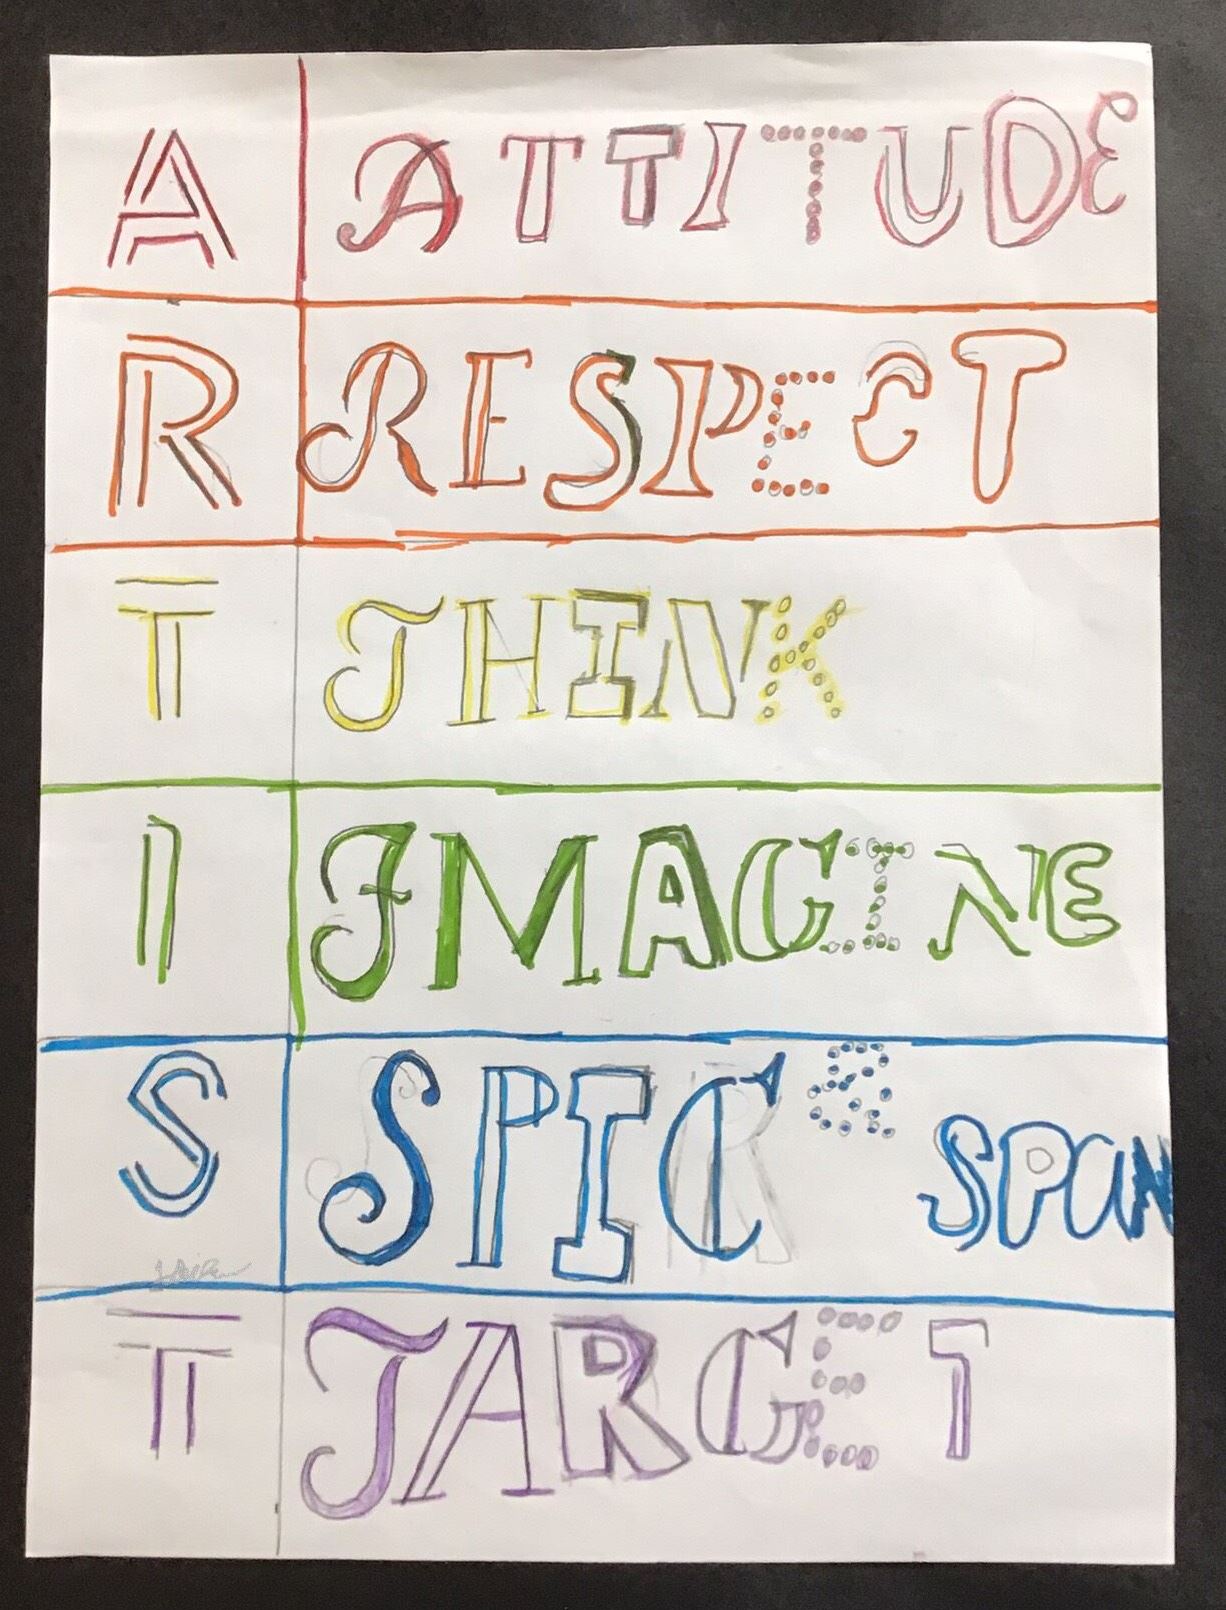 A ATTITUDE
R RESPECT
T THINK
I IMAGINE
S SPIC & SPAN
T TARGET